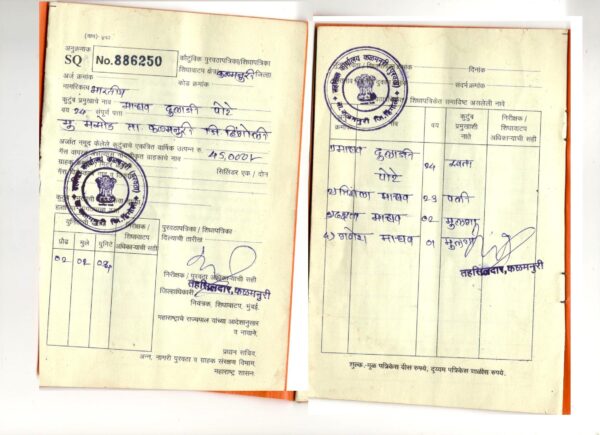 (वाण) ४८
अनुक्रमांक
SQ No.886250 कौटुंबिक पुरवठापत्रिका/शिधापत्रिका
शिधावाटप क्षेत्र कळमनुरी जिल्हा
अर्ज क्रमांक कोड क्रमांक
नागरिकत्व भारतीय
कुटुंब प्रमुखाचे नाव माधव दुलाजी पोटे
वय 24 संपूर्ण पत्ता
मु ता. कळमनुरी जि हिंगोली
अर्जात नमूद केलेले कुटुंबाचे एकत्रित वार्षिक उत्पन्न रु. 45,000/-
गॅस वापरत असलेल्या ग्राहकाचे नाव
सिलिंडर एक / दोन
निरीक्षक /
शिधावाटप
अधिकाऱ्याची सही
प्रौढ मुले युनिट
02 02
पुरवठापत्रिका / शिधापत्रिका
दिल्याची तारीख
निरीक्षक / पुरवठा अधिकाऱ्याची सही
तहसिलदार, कळमनुरी
जिल्हाधिकारी
नियंत्रक, शिधावाटप, मुंबई.
महाराष्ट्राचे राज्यपाल यांच्या आदेशानुसार
व नावाने,
प्रधान सचिव,
अन्न, नागरी पुरवठा व ग्राहक संरक्षण विभाग,
महाराष्ट्र शासन.
क्रमांक दिनांक
संदर्भ क्रमांक
शिधापत्रिकेत समाविष्ट असलेली नावे
वय
कुटुंब
प्रमुखाशी
नाते
निरीक्षक /
शिधावाटप
अधिकाऱ्याची सही
1) माधव दुलाजी 24 स्वतः
पोटे
माधव 23 पत्नी
माधव 02 मुलगा
4) गणेश माधव 01 मुलगा
तहसिलदार, कळमनुरी
शुल्क:-मुळ पत्रिकेस वीस रुपये, दुय्यम पत्रिकेस चाळीस रुपये.